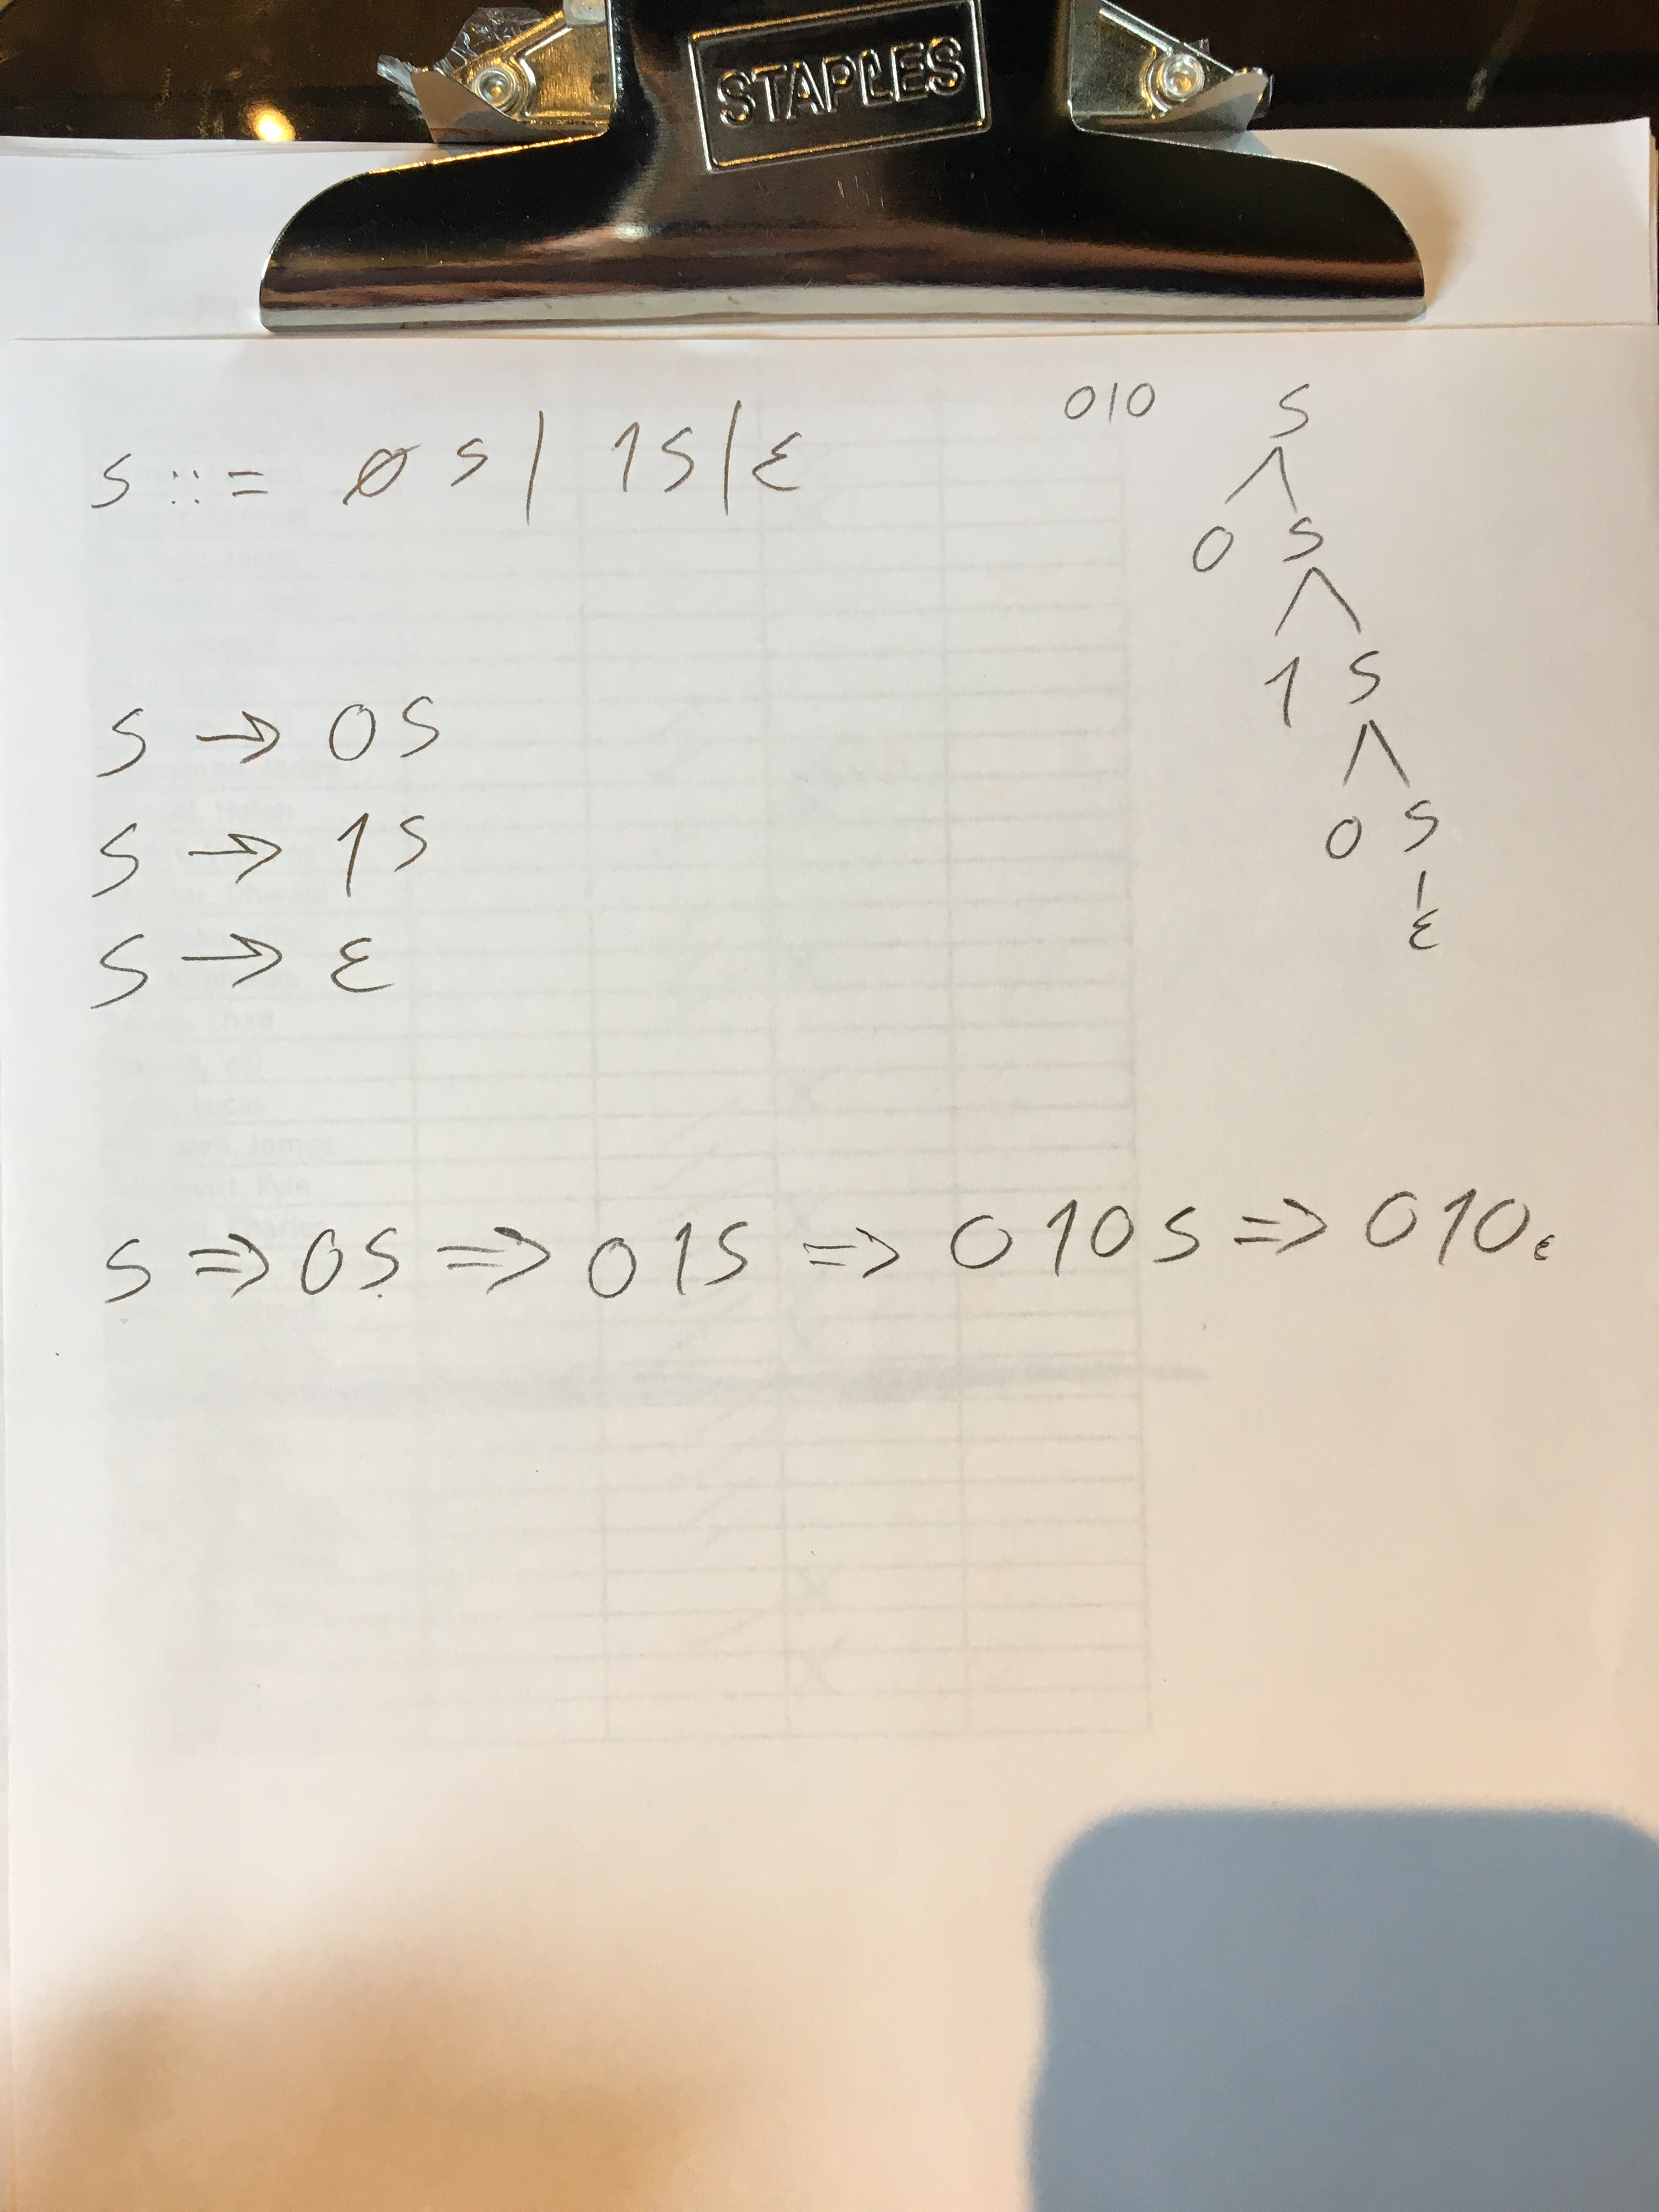 STAPLES
S ::= 0S | 1S | ε
010
S
0 S
1 S
0 S
ε
S → 0S
S → 1S
S → ε
S ⇒ 0S ⇒ 01S ⇒ 010S ⇒ 010ε